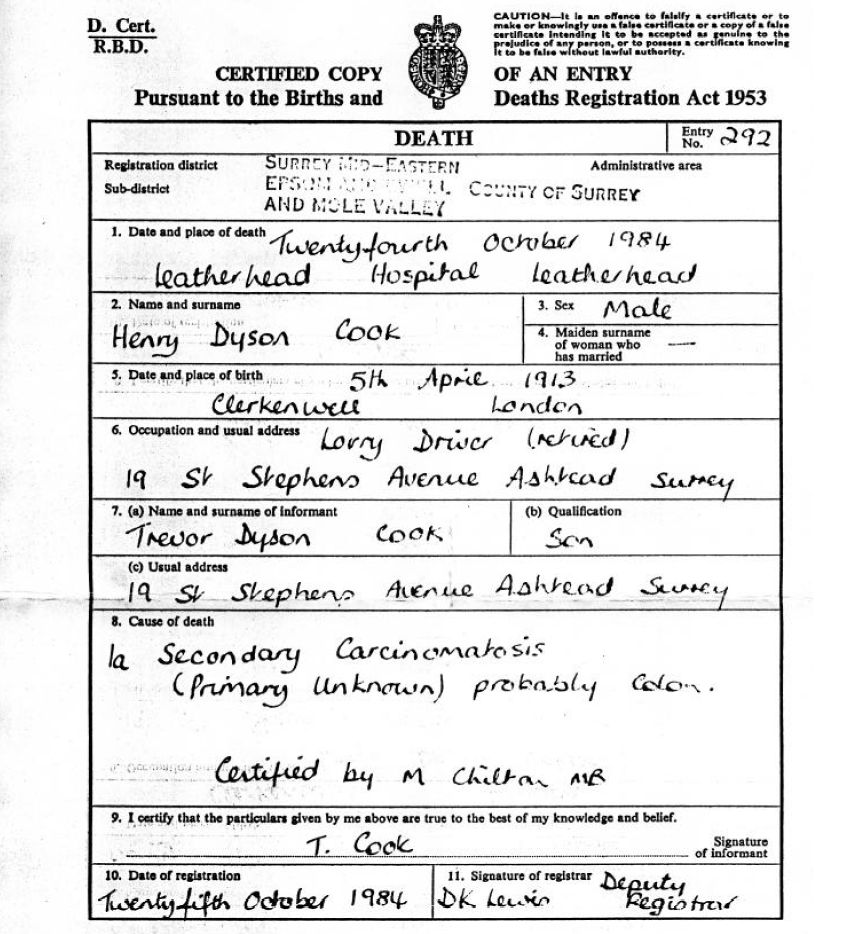 D. Cert.
R.B.D.
CAUTION—It is an offence to falsify a certificate or to
make or knowingly use a false certificate or a copy of a false
certificate intending it to be accepted as genuine to the
prejudice of any person, or to possess a certificate knowing
it to be false without lawful authority.
CERTIFIED COPY OF AN ENTRY
Pursuant to the Births and Deaths Registration Act 1953
DEATH
Entry No. 292
Registration district SURREY MID-EASTERN Administrative area
Sub-district EPSOM AND EWELL COUNTY OF SURREY
AND MOLE VALLEY
1. Date and place of death Twentyfourth October 1984
Leatherhead Hospital Leatherhead
2. Name and surname
Henry Dyson Cook
3. Sex Male
4. Maiden surname
of woman who
has married —
5. Date and place of birth 5th April 1913
Clerkenwell London
6. Occupation and usual address Lorry Driver (retired)
19 St Stephens Avenue Ashtead Surrey
7. (a) Name and surname of informant
Trevor Dyson Cook
(b) Qualification
Son
(c) Usual address
19 St Stephens Avenue Ashtead Surrey
8. Cause of death
Ia Secondary Carcinomatosis
(Primary Unknown) probably Colon.
Certified by M Chilton MB
9. I certify that the particulars given by me above are true to the best of my knowledge and belief.
T. Cook
Signature
of informant
10. Date of registration
Twentyfifth October 1984
11. Signature of registrar
DK Lewis Deputy
Registrar